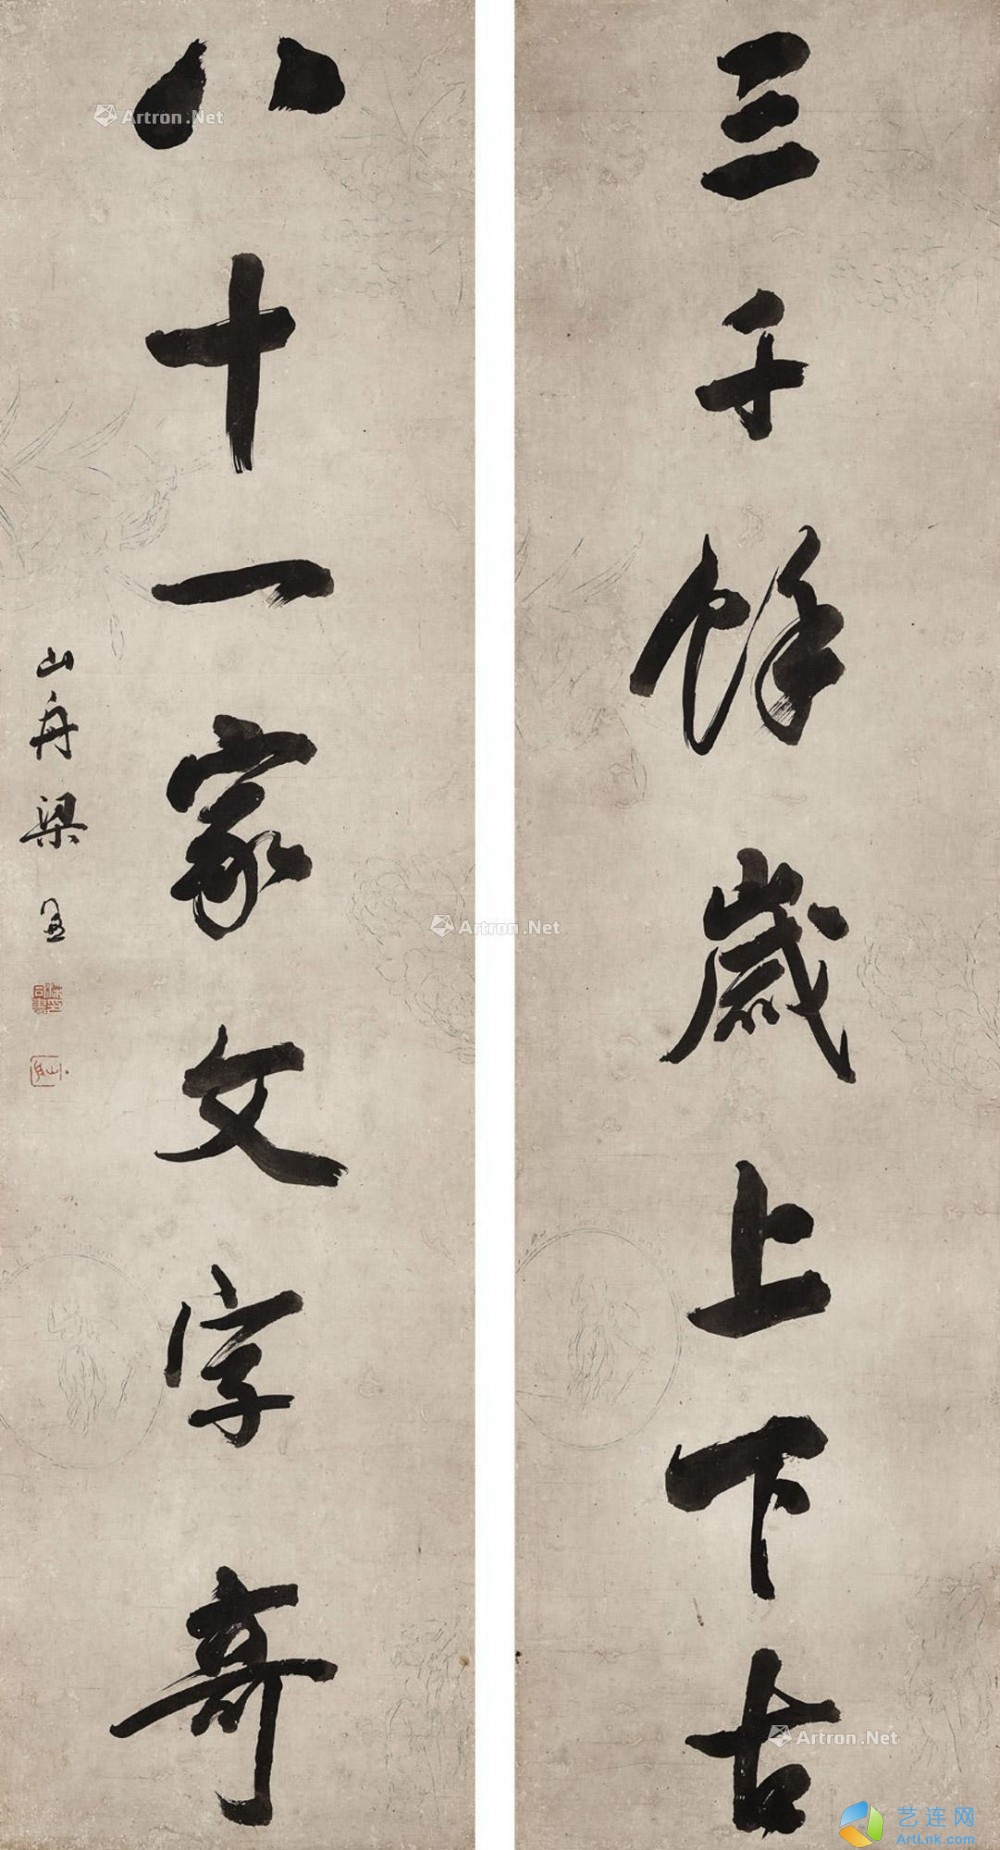 三千餘歲上下古
八十一家文字奇
山舟梁同書
Artron.Net
Artron.Net
Artron.Net
艺连网
ArtLnk.com